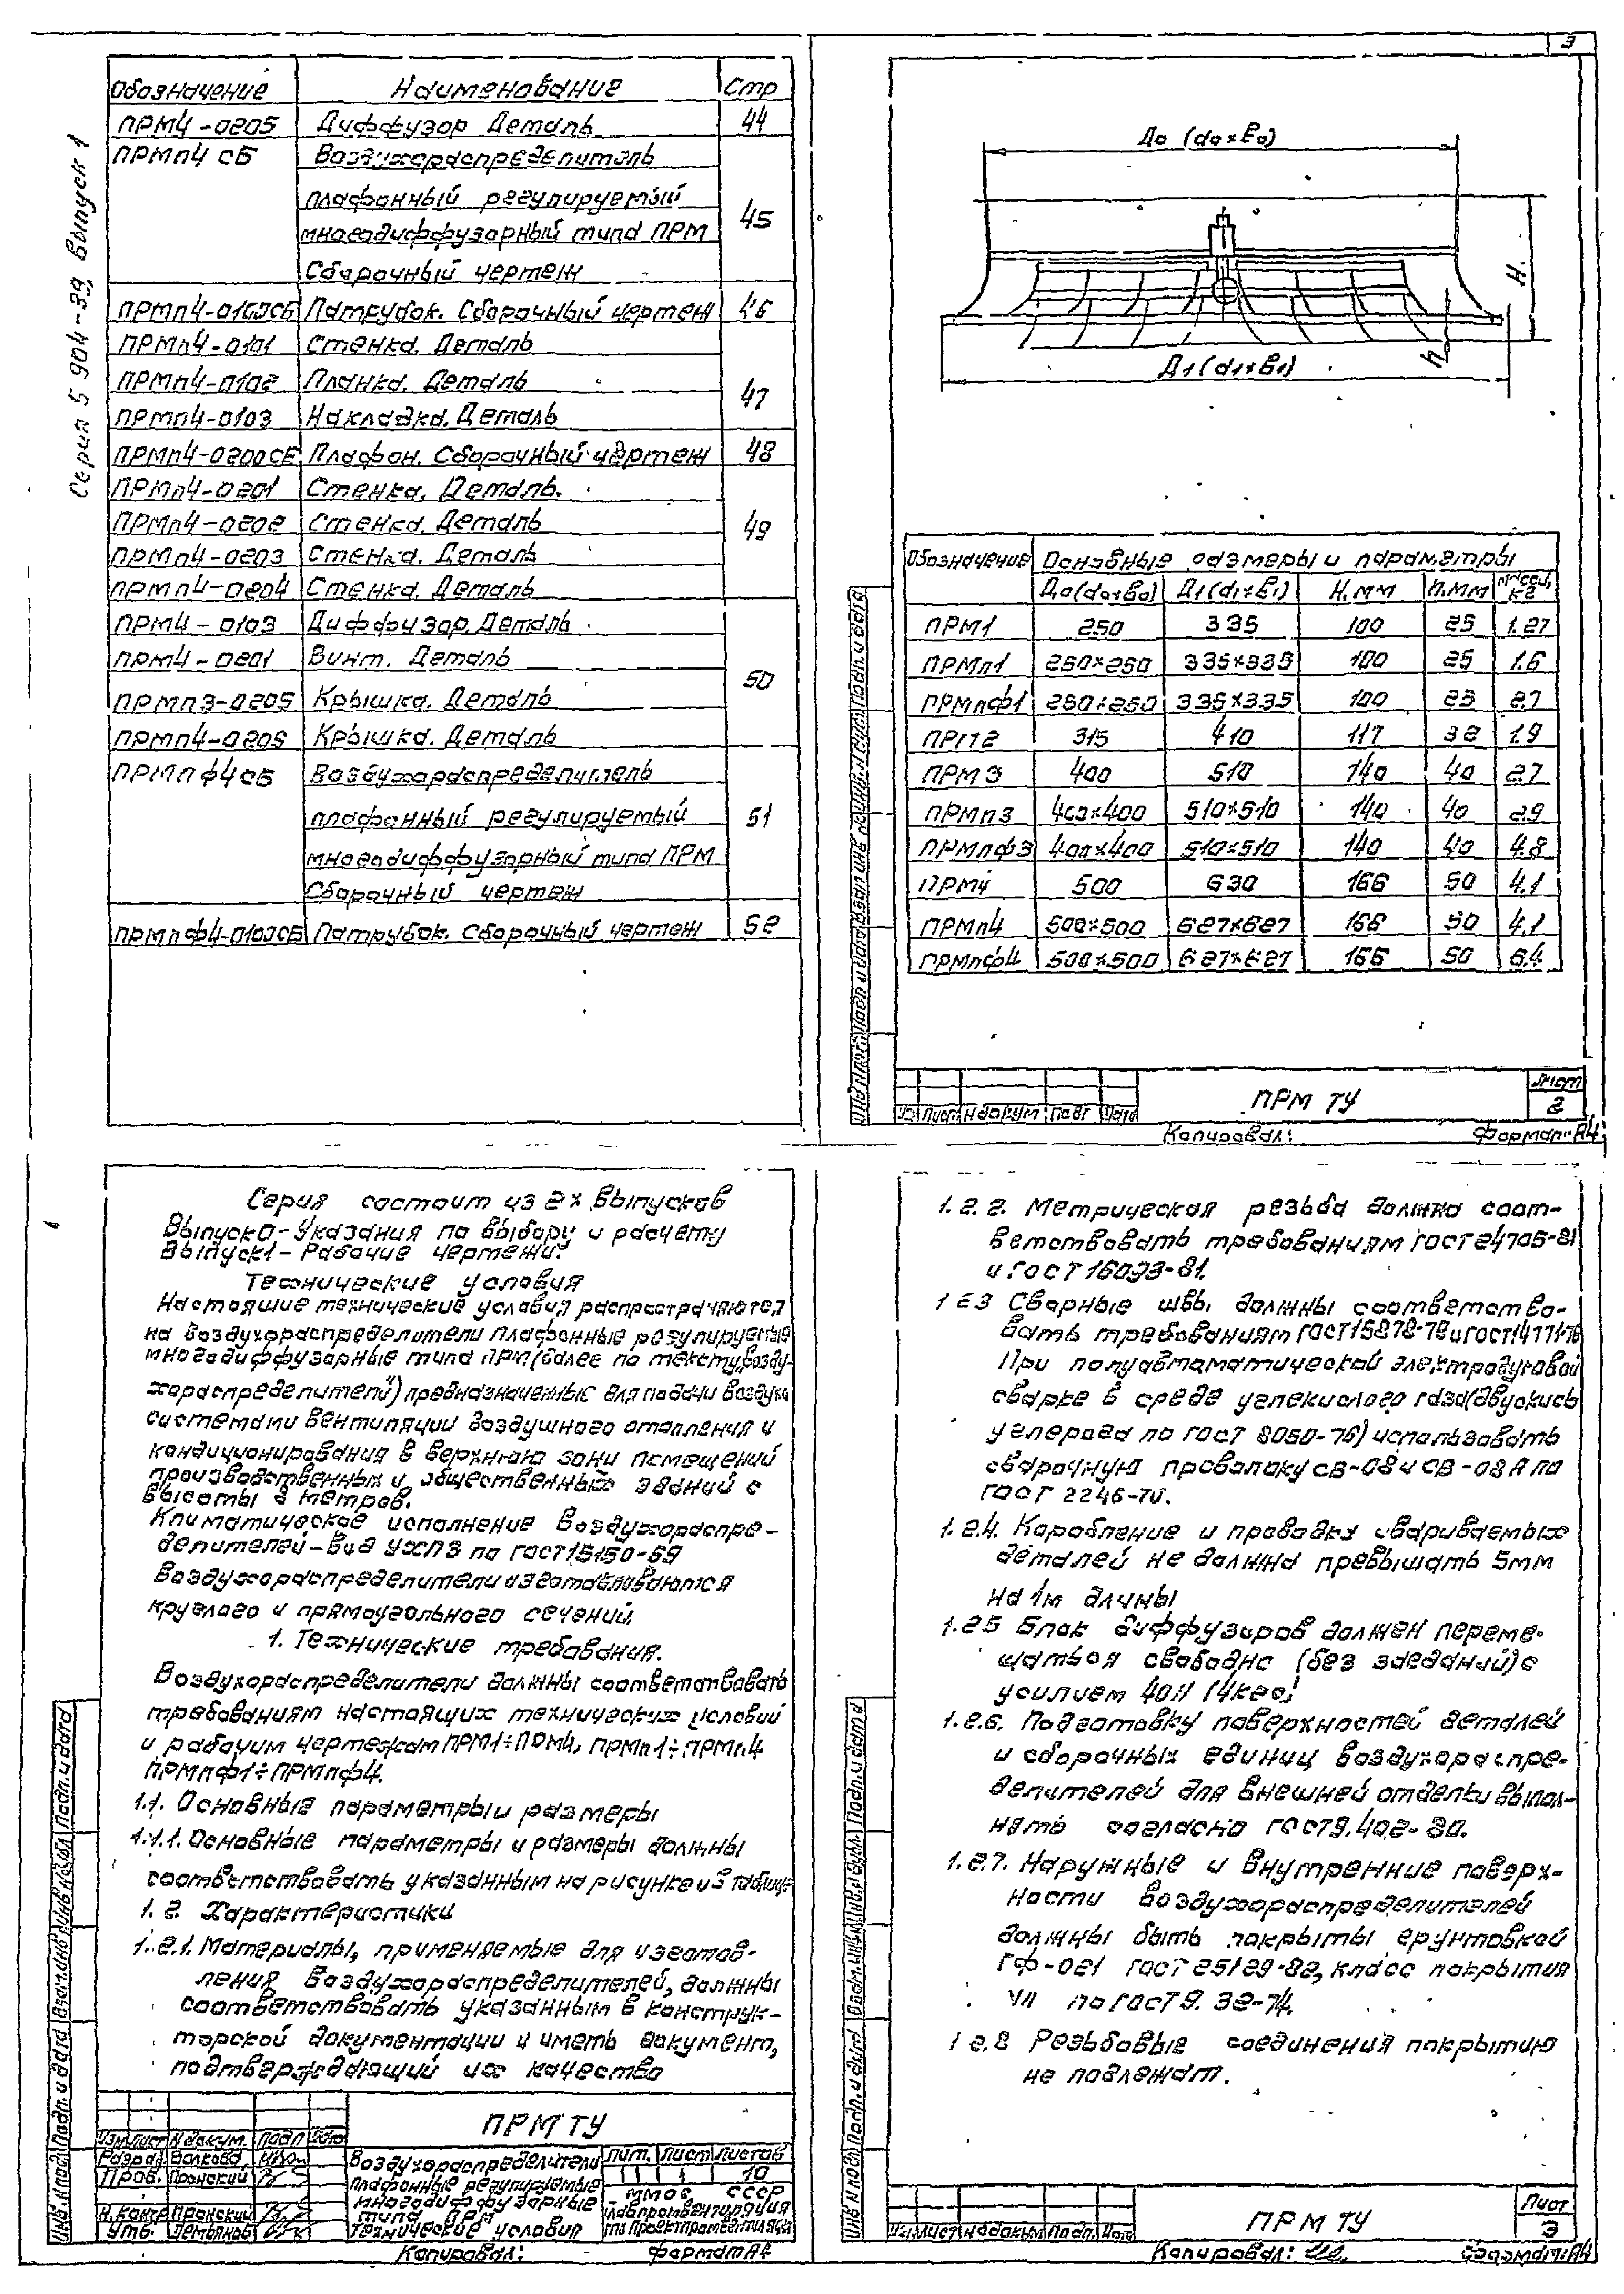 Серия 5 904-39 Выпуск 1
Обозначение Наименование Стр
ПРМ4-0205 Диффузор Деталь 44
ПРМп4 СБ Воздухораспределитель
плафонный регулируемый
многодиффузорный типа ПРМ 45
Сборочный чертеж
ПРМп4-0100СБ Патрубок. Сборочный чертеж 46
ПРМп4-0101 Стенка. Деталь
ПРМп4-0102 Планка. Деталь 47
ПРМп4-0103 Накладка. Деталь
ПРМп4-0200СБ Плафон. Сборочный чертеж 48
ПРМп4-0201 Стенка. Деталь.
ПРМп4-0202 Стенка. Деталь 49
ПРМп4-0203 Стенка. Деталь
ПРМп4-0204 Стенка. Деталь
ПРМ4-0103 Диффузор. Деталь
ПРМ4-0201 Винт. Деталь 50
ПРМп3-0205 Крышка. Деталь
ПРМп4-0205 Крышка. Деталь
ПРМпф4СБ Воздухораспределитель
плафонный регулируемый 51
многодиффузорный типа ПРМ
Сборочный чертеж
ПРМпф4-0100СБ Патрубок. Сборочный чертеж 52
3
До (do×Во)
Н.
h
Д1 (d1×В1)
Обозначение Основные размеры и параметры
До(do×Во) Д1(d1×В1) Н.мм h.мм Масса, кг
ПРМ1 250 335 100 25 1.27
ПРМп1 250×250 335×335 100 25 1.6
ПРМпф1 250×250 335×335 100 25 2.7
ПРМ2 315 410 117 32 1.9
ПРМ3 400 510 140 40 2.7
ПРМп3 400×400 510×510 140 40 2.9
ПРМпф3 400×400 510×510 140 40 4.8
ПРМ4 500 630 166 50 4.1
ПРМп4 500×500 627×627 166 50 4.1
ПРМпф4 500×500 627×627 166 50 6.4
Инв.N подл Подп и дата Взам инв Подп. и дата
Изм Лист N докум Подп Дата ПРМ ТУ Лист 2
Копировал: Формат А4
Серия состоит из 2х выпусков
Выпуск 0-Указания по выбору и расчету
Выпуск 1-Рабочие чертежи.
Технические условия
Настоящие технические условия распространяются
на воздухораспределители плафонные регулируемые
многодиффузорные типа ПРМ (далее по тексту „возду-
хораспределители") предназначенные для подачи воздуха
системами вентиляции воздушного отопления и
кондиционирования в верхнюю зону помещений
производственных и общественных зданий с
высоты 3 метров.
Климатическое исполнение воздухораспре-
делителей-вид УХЛ3 по ГОСТ15150-69
Воздухораспределители изготавливаются
круглого и прямоугольного сечений.
1. Технические требования.
Воздухораспределители должны соответствовать
требованиям настоящих технических условий
и рабочим чертежам ПРМ1÷ПРМ4, ПРМп1÷ПРМп4
ПРМпф1÷ПРМпф4.
1.1. Основные параметры и размеры
1.1.1. Основные параметры и размеры должны
соответствовать указанным на рисунке и в таблице
1.2. Характеристики
1.2.1. Материалы, применяемые для изготов-
ления воздухораспределителей, должны
соответствовать указанным в конструк-
торской документации и иметь документ,
подтверждающий их качество
Инв.N подл Подп. и дата Взам.инв Инв.N дубл Подп. и дата
ПРМ ТУ
Изм Лист N докум. Подп Дата
Разраб Волкова
Пров. Пронский
Н.контр Пронский
Утв.
Воздухораспределители
плафонные регулируемые
многодиффузорные
типа ПРМ
Технические условия
Лит. Лист Листов
1 10
ММСС СССР
Главпромвентиляция
ГПИ Проектпромвентиляция
Копировал: Формат А4
1.2.2. Метрическая резьба должна соот-
ветствовать требованиям ГОСТ 24705-81
и ГОСТ 16093-81.
1 2 3 Сварные швы должны соответство-
вать требованиям ГОСТ15878-79 и ГОСТ14771-76
При полуавтоматической электродуговой
сварке в среде углекислого газа (двуокись
углерода по ГОСТ 8050-76) использовать
сварочную проволоку СВ-08 и СВ-08А по
ГОСТ 2246-70.
1.2.4. Коробление и поводка свариваемых
деталей не должна превышать 5мм
на 1м длины
1.2 5 Блок диффузоров должен переме-
щаться свободно (без заеданий) с
усилием 40Н (4кгс)
1.2.6. Подготовку поверхностей деталей
и сборочных единиц воздухораспре-
делителей для внешней отделки выпол-
нять согласно ГОСТ9.402-80.
1.2.7. Наружные и внутренние поверх-
ности воздухораспределителей
должны быть покрыты грунтовкой
ГФ-021 ГОСТ 25129-82, класс покрытия
VII по ГОСТ 9. 32-74.
1 2.8 Резьбовые соединения покрытию
не подлежат.
Инв N подл Подп. и дата Взам.инв.N Инв.N дубл. Подп. и дата
Изм Лист N докум Подп. Дата ПРМ ТУ Лист 3
Копировал: Формат А4